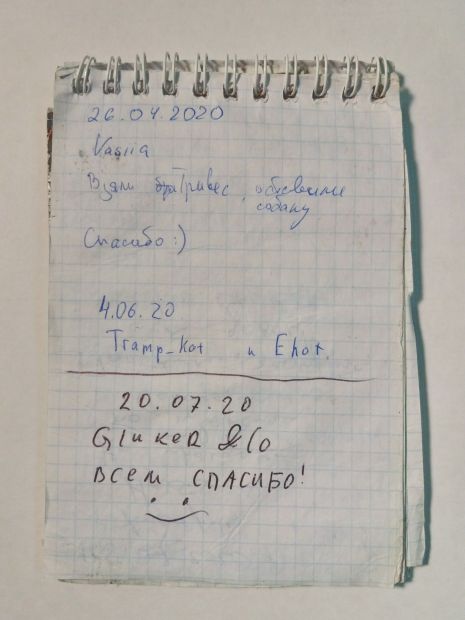 26.04.2020
Vasiia
Взяли травел, обменяли
собаку
Спасибо :)
4.06.20
Tramp_Kot и Enot.
20.07.20
GlukeR &Co
ВСЕМ СПАСИБО!